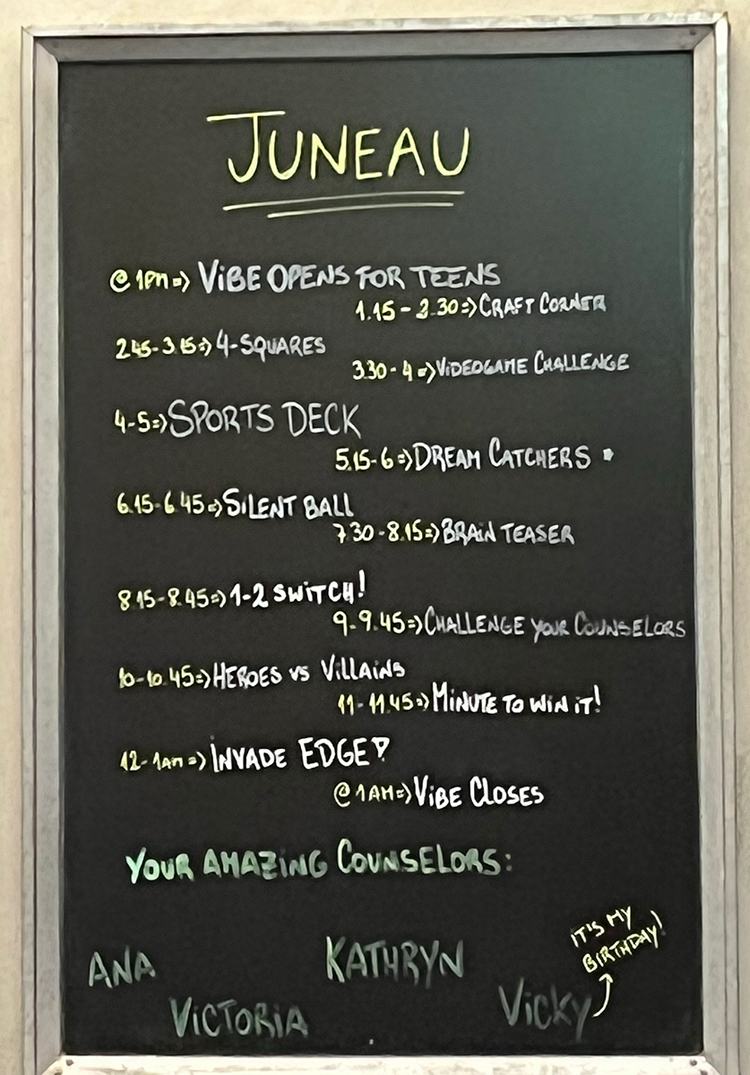 JUNEAU
@ 1PM => VIBE OPENS FOR TEENS
1.15 - 2.30 => CRAFT CORNER
2.45 - 3.15 => 4-SQUARES
3.30 - 4 => VIDEOGAME CHALLENGE
4-5 => SPORTS DECK
5.15-6 => DREAM CATCHERS
6.15-6.45 => SILENT BALL
7.30 - 8.15 => BRAIN TEASER
8.15-8.45 => 1-2 SWITCH!
9-9.45 => CHALLENGE YOUR COUNSELORS
10-10.45 => HEROES VS VILLAINS
11-11.45 => MINUTE TO WIN IT!
12-1AM => INVADE EDGE!
@ 1AM => VIBE CLOSES
YOUR AMAZING COUNSELORS:
IT'S MY
BIRTHDAY!
ANA
KATHRYN
VICTORIA
VICKY